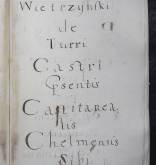 Wietrzyński
de
Turri
Castri
Psentis
Capitanea
lis
Chelmensis
Sibi